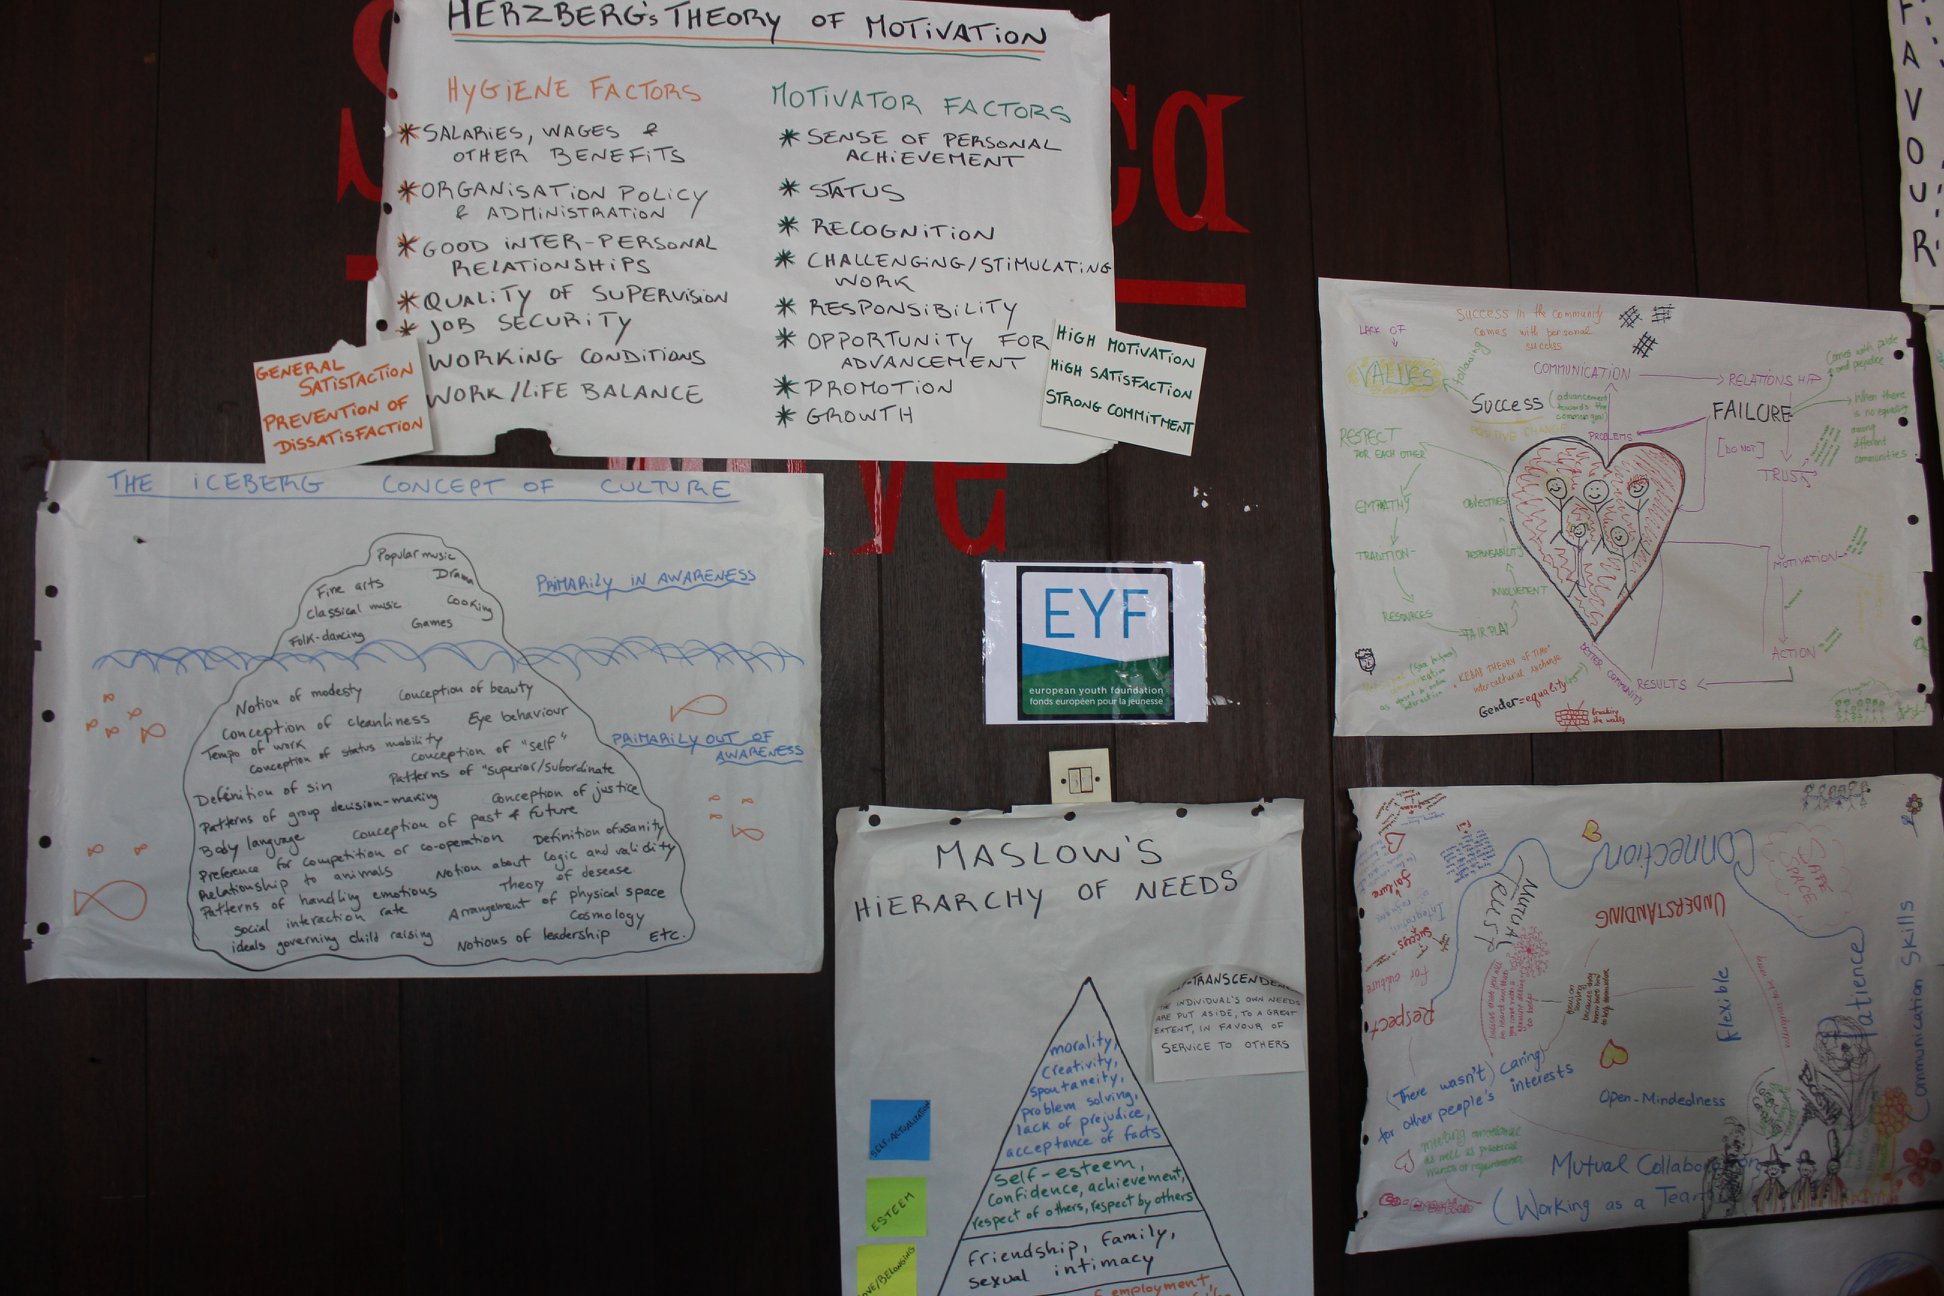 HERZBERG'S THEORY OF MOTIVATION
HYGIENE FACTORS
SALARIES, WAGES &
OTHER BENEFITS
ORGANISATION POLICY
& ADMINISTRATION
GOOD INTER-PERSONAL
RELATIONSHIPS
QUALITY OF SUPERVISION
JOB SECURITY
WORKING CONDITIONS
WORK/LIFE BALANCE
GENERAL
SATISTACTION
PREVENTION OF
DISSATISFACTION
MOTIVATOR FACTORS
SENSE OF PERSONAL
ACHIEVEMENT
STATUS
RECOGNITION
CHALLENGING/STIMULATING
WORK
RESPONSIBILITY
OPPORTUNITY FOR
ADVANCEMENT
PROMOTION
GROWTH
HIGH MOTIVATION
HIGH SATISFACTION
STRONG COMMITMENT
THE ICEBERG CONCEPT OF CULTURE
Popular music
Fine arts Drama
Classical music Cooking
Folk-dancing Games
PRIMARILY IN AWARENESS
Notion of modesty Conception of beauty
Conception of cleanliness Eye behaviour
Tempo of work
Conception of status mobility Conception of "self"
Definition of sin Patterns of "superior/subordinate
Patterns of group decision-making Conception of justice
Body language Conception of past & future
Preference for competition or co-operation Definition of insanity
Relationship to animals Notion about logic and validity
Patterns of handling emotions Theory of desease
social interaction rate Arrangement of physical space
ideals governing child raising Cosmology
Notions of leadership Etc.
PRIMARILY OUT OF
AWARENESS
EYF
european youth foundation
fonds européen pour la jeunesse
MASLOW'S
HIERARCHY OF NEEDS
-TRANSCENDENC
THE INDIVIDUAL'S OWN NEEDS
ARE PUT ASIDE, TO A GREAT
EXTENT, IN FAVOUR OF
SERVICE TO OTHERS
morality,
creativity,
spontaneity,
problem solving,
lack of prejudice,
acceptance of facts
self-esteem,
confidence, achievement,
respect of others, respect by others
friendship, family,
sexual intimacy
employment,
SELF-ACTUALIZATION
ESTEEM
OVE/BELONGING
FAVOUR
LACK OF
Success in the community
comes with personal
success
VALUES
following
COMMUNICATION
RELATIONSHIP
Comes with pride
and prejudice
SUCCESS
(advancement
towards the
common goal)
POSITIVE CHANGE
FAILURE
When there
is no equality
among
different
communities
RESPECT
FOR EACH OTHER
PROBLEMS
[DO NOT]
TRUST
EMPATHY
OBJECTIVES
TRADITION
RESPONSABILITY
MOTIVATION
RESOURCES
INVOLVEMENT
FAIR PLAY
ACTION
BETTER COMMUNITY
RESULTS
"KEBAB THEORY OF TIME"
intercultural exchange
Gender=equality
breaking
the walls
Connection
SAFE
SPACE
UNDERSTANDING
MUTUAL
TRUST
Respect
For culture
failure
success
Flexible
Patience
Communication Skills
(There wasn't) Caring
for other people's interests
Open-Mindedness
meeting emotional
as well as practical
Mutual Collaboration
(Working as a Team